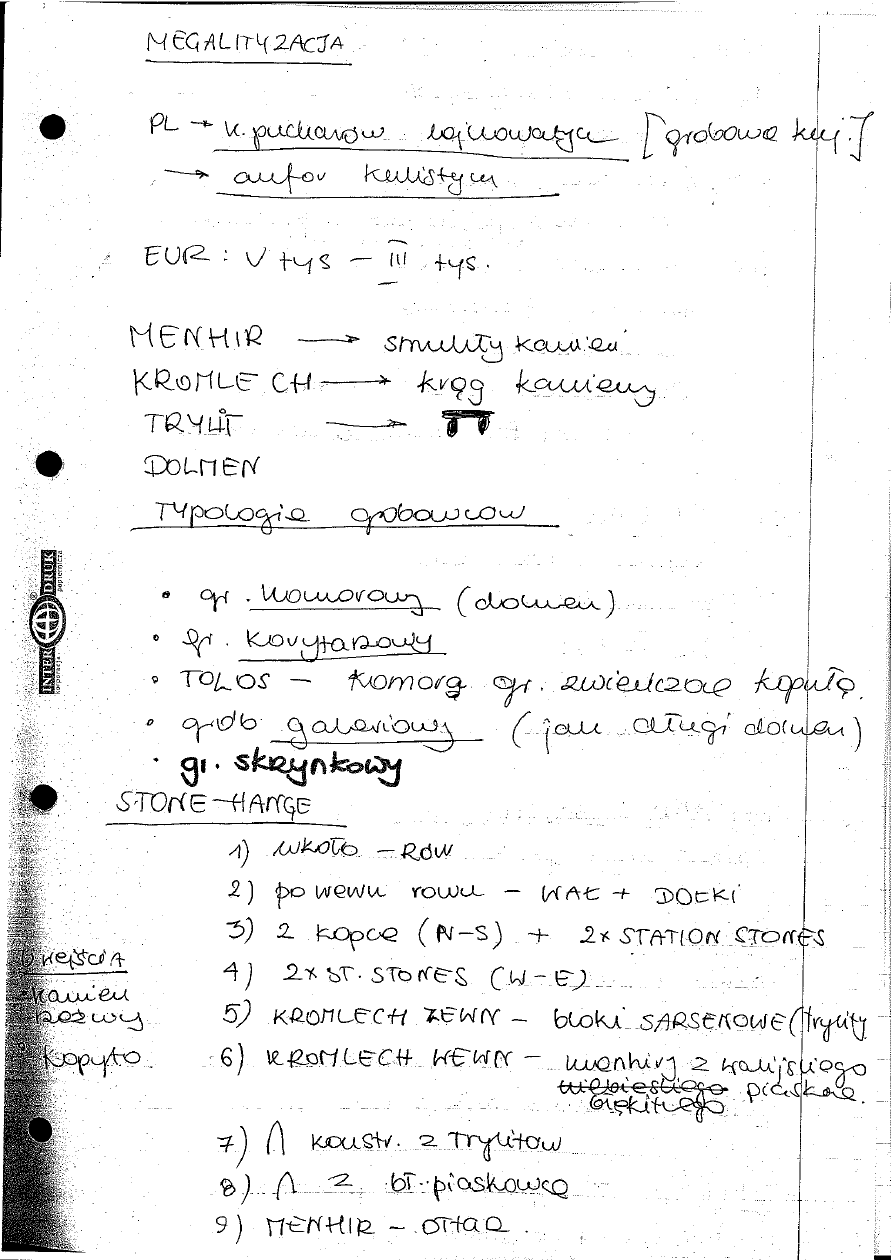 MEGALITYZACJA
PL → k. pucharów lejkowatych [grobowce kuj.]
→ amfor kulistych
EUR : V tys – III tys.
MENHIR → smukły kamień
KROMLECH → krąg kamienny
TRYLIT →
DOLMEN
Typologie grobowców
• gr. komorowy (dolmen)
• gr. korytarzowy
• TOLOS – komora gr. zwieńczone kopułą
• grób galeriowy (jak długi dolmen)
• gr. skrzynkowy
INTER DRUK
STONE-HANGE
1) wkoło – RÓW
2) po wewn rowu – WAŁ + DOŁKI
3) 2 kopce (N-S) + 2x STATION STONES
4) 2x ST. STONES (W-E)
5) KROMLECH ZEWN – bloki SARSENOWE (trylity
6) KROMLECH WEWN – menhiry z walijskiego
niebieskiego piaskow.
błękitnego
wejścia
kamień
kopyto
7) ∩ konstr. z Trylitów
8) ∩ z bł. piaskowca
9) MENHIR – OŁTARZ